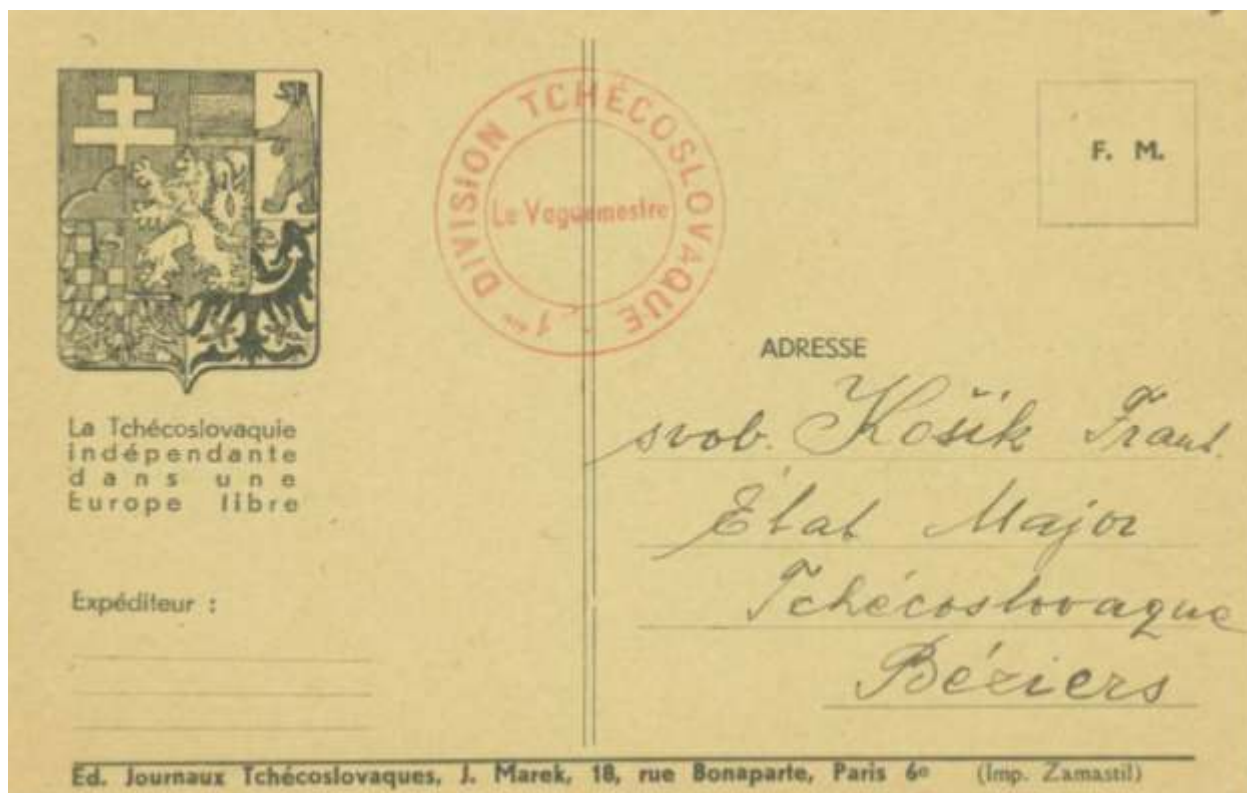 1ère DIVISION TCHÉCOSLOVAQUE -
Le Vaguemestre
F. M.
La Tchécoslovaquie
indépendante
dans une
Europe libre
ADRESSE
svob. Košík Frant.
État Major
Tchécoslovaque
Béziers
Expéditeur :
Ed. Journaux Tchécoslovaques, J. Marek, 18, rue Bonaparte, Paris 6e (Imp. Zamastil)